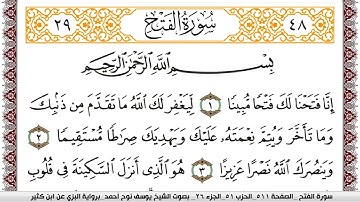 ٢٩ سُورَةُ الفَتْحِ ٤٨
بِسْمِ اللَّهِ الرَّحْمَٰنِ الرَّحِيمِ
إِنَّا فَتَحْنَا لَكَ فَتْحًا مُّبِينًا ١ لِّيَغْفِرَ لَكَ اللَّهُ مَا تَقَدَّمَ مِن ذَنۢبِكَ
وَمَا تَأَخَّرَ وَيُتِمَّ نِعْمَتَهُۥ عَلَيْكَ وَيَهْدِيَكَ صِرَٰطًا مُّسْتَقِيمًا ٢
وَيَنصُرَكَ اللَّهُ نَصْرًا عَزِيزًا ٣ هُوَ الَّذِي أَنزَلَ السَّكِينَةَ فِي قُلُوبِ
سورة الفتح _الصفحة ٥١١_الحزب ٥١_الجزء ٢٦_ بصوت الشيخ يوسف نوح أحمد _برواية البزي عن ابن كثير